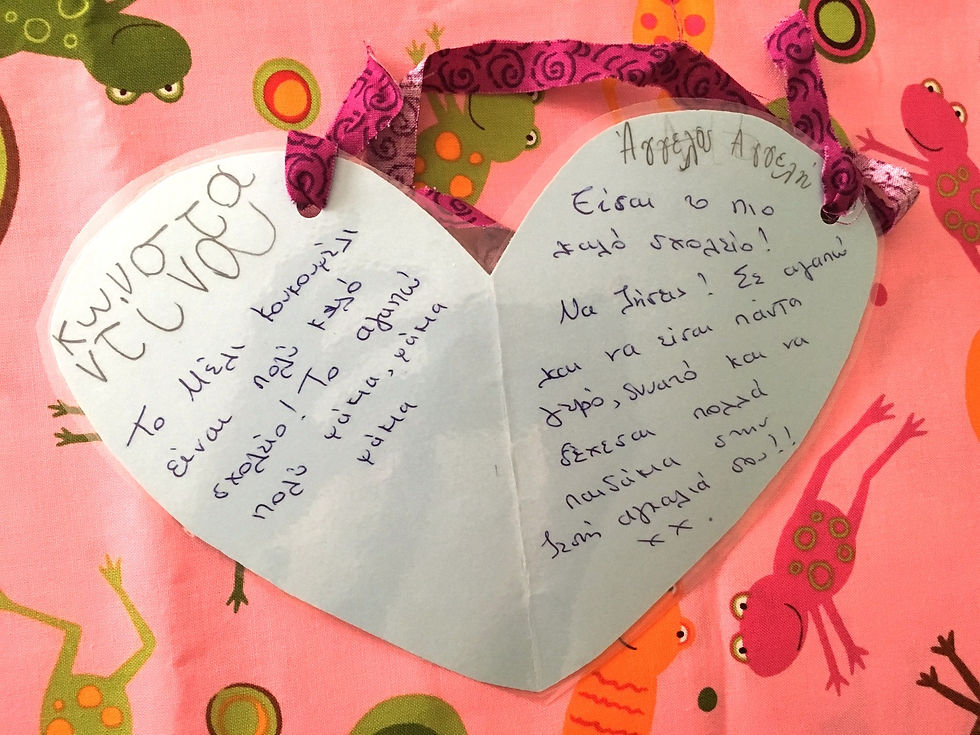 ντι να
Το Μέλι Κουκουμέλι
είναι πολύ καλό
σχολείο! Το αγαπώ
πολύ μάκια, μάκια
μάκια
Άγγελος Αγγελή
Είσαι το πιο
καλό σχολείο!
Να ζήσεις! Σε αγαπώ
και να είσαι πάντα
γερό, δυνατό και να
δέχεσαι πολλά
παιδάκια στην
ζεστή αγκαλιά σου!!
xx.